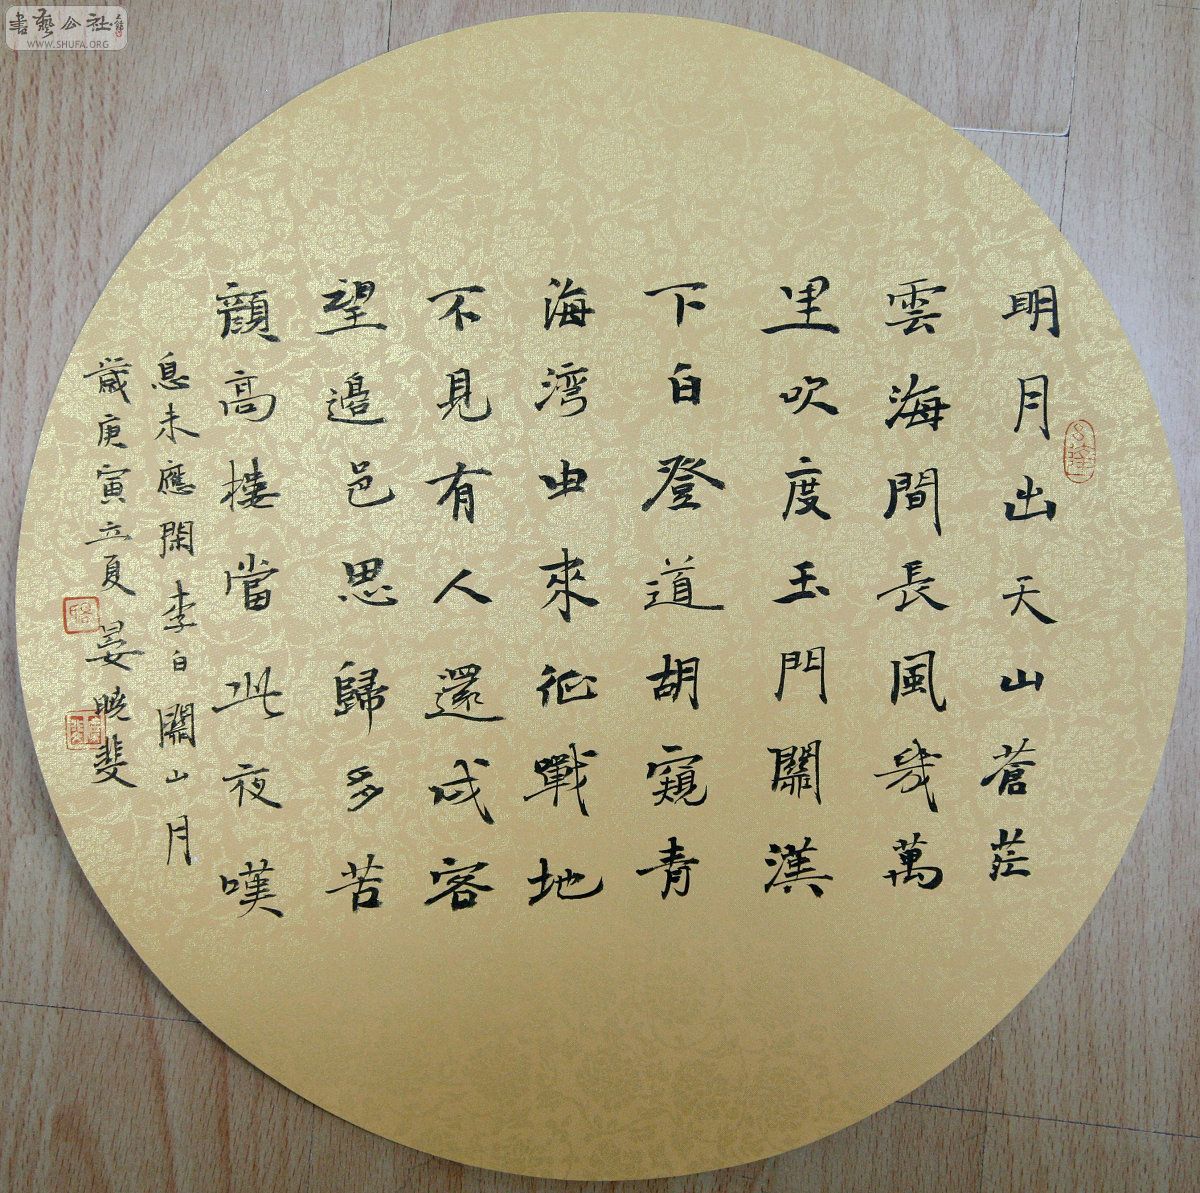 明月出天山蒼茫
雲海間長風幾萬
里吹度玉門關漢
下白登道胡窺青
海湾由來征戰地
不見有人還戍客
望邊邑思歸多苦
顏高樓當此夜嘆
息未應閑李白關山月
歲庚寅立夏晏曉斐
書藝公社
WWW.SHUFA.ORG